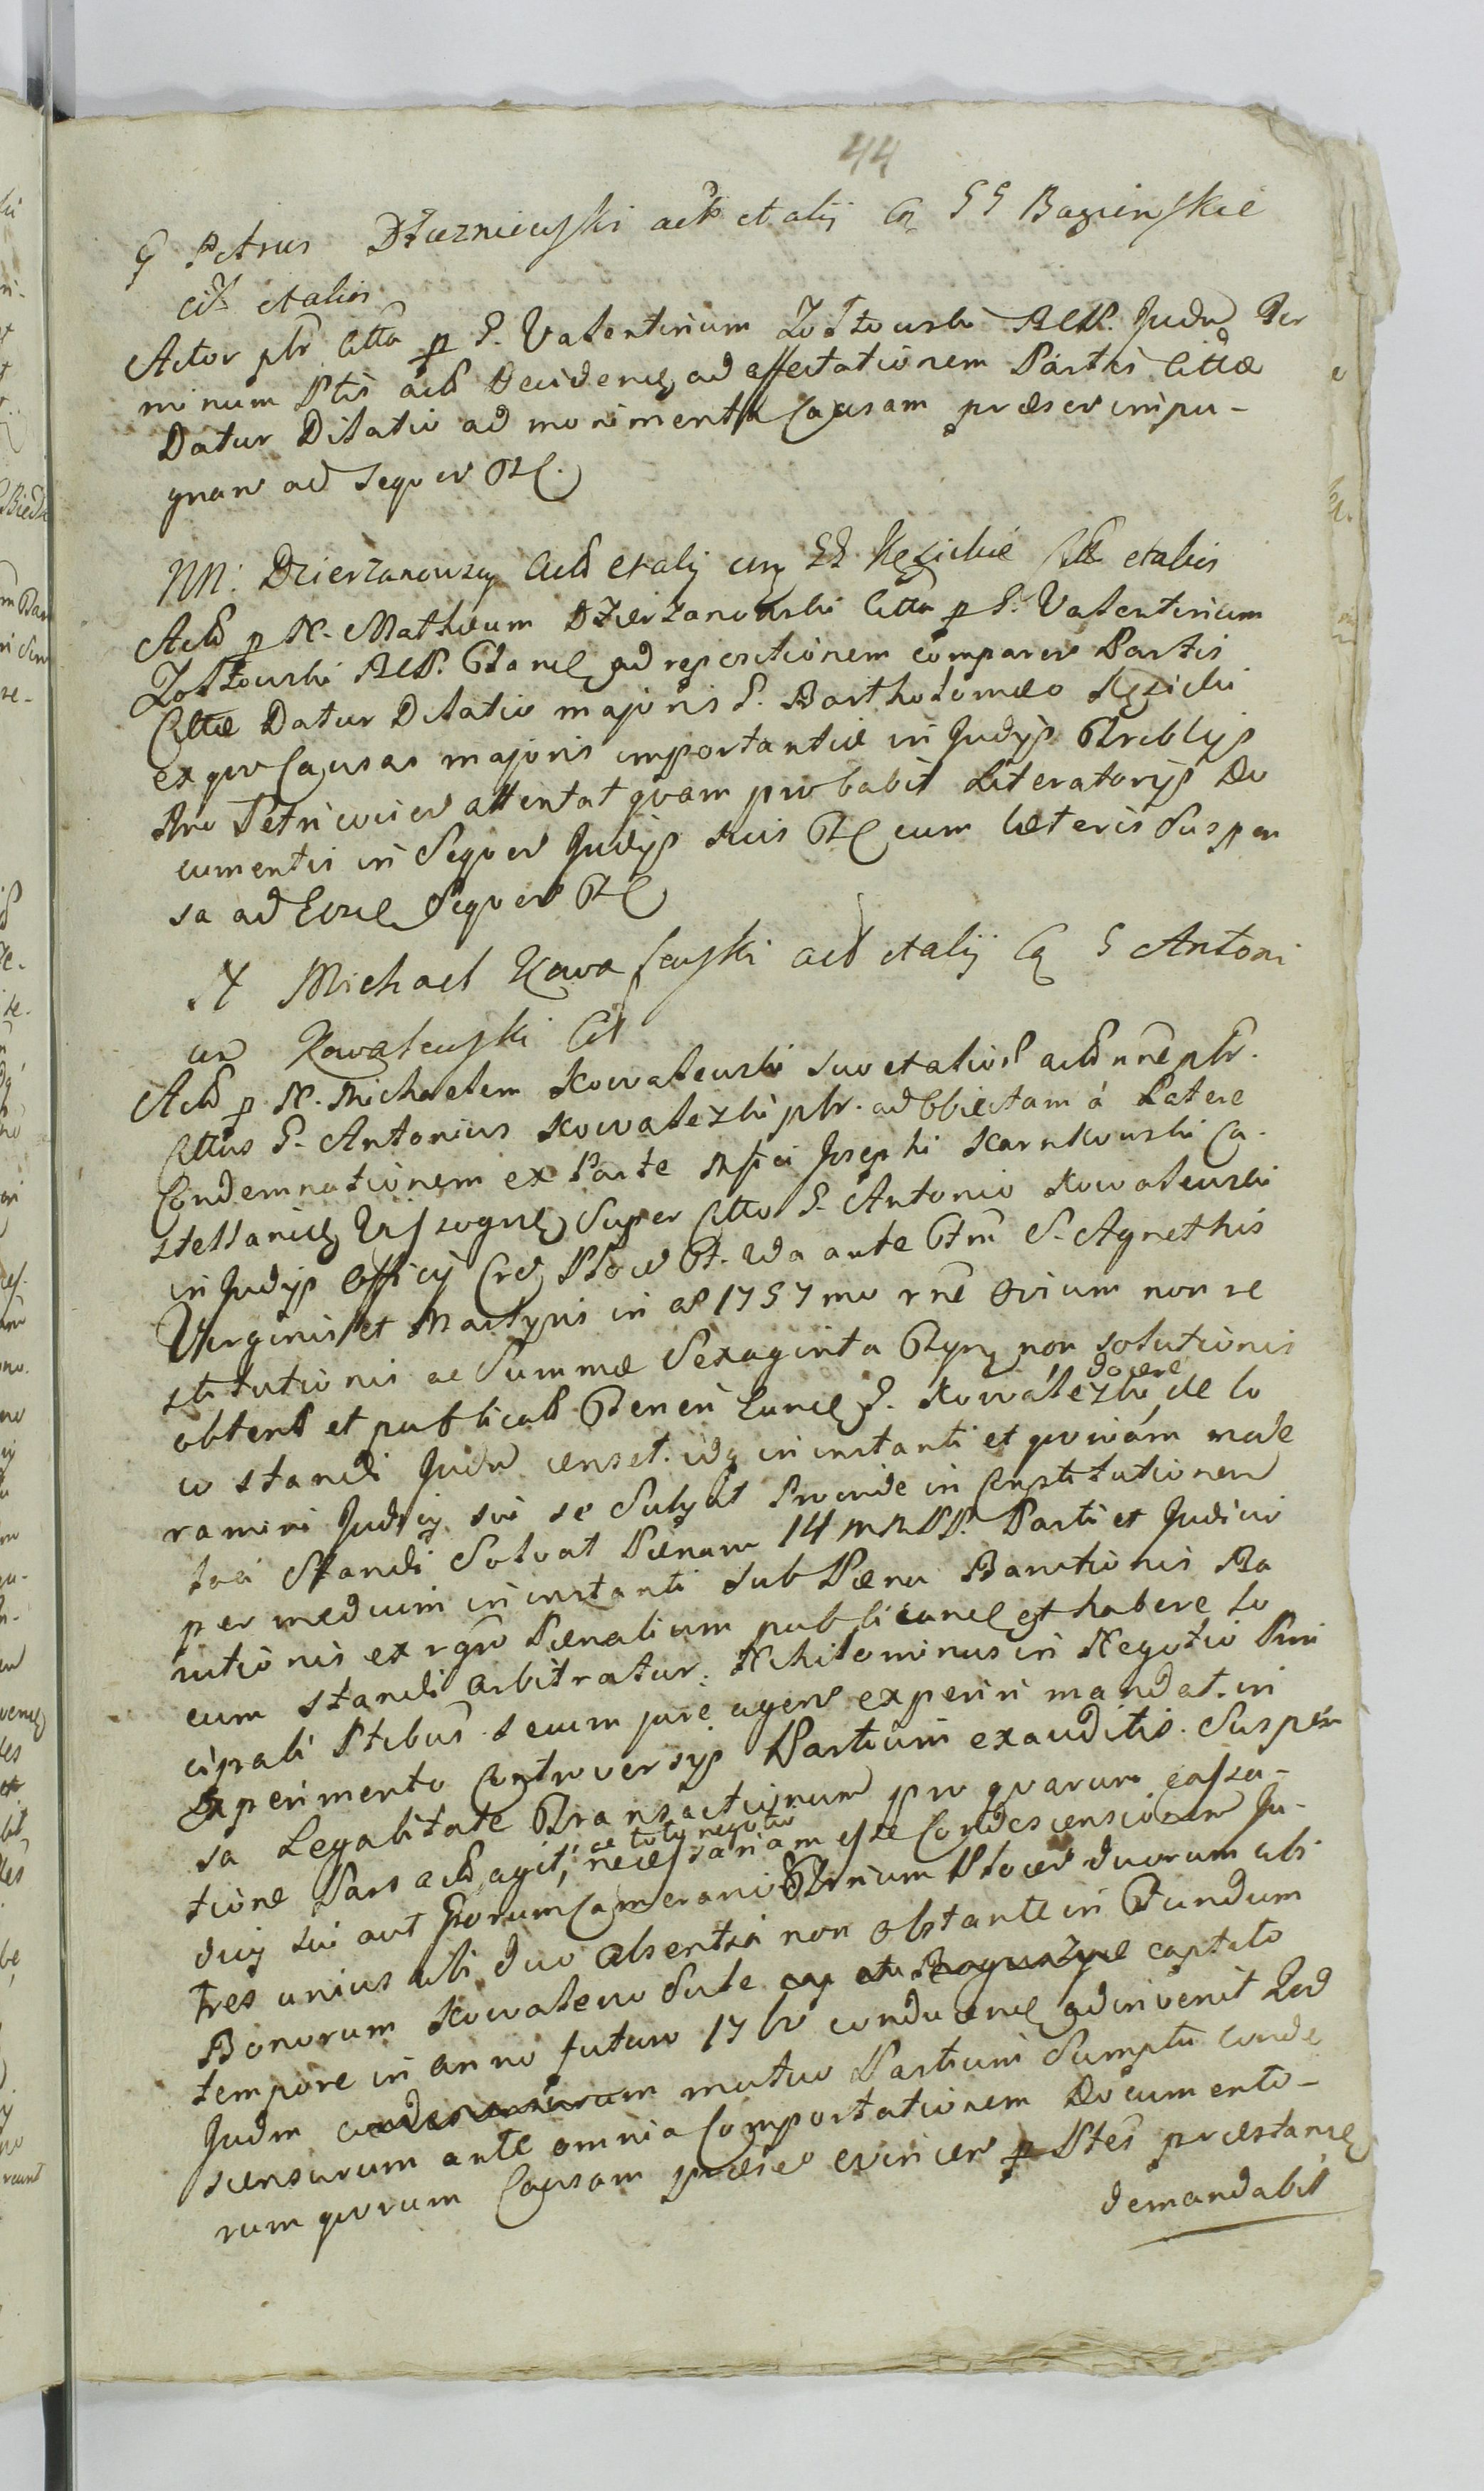 44
G Petrus Dłuzniewski act et alij Cq GG Bagienskie
cit et alios
Actor ptr Citta p G. Valentinum Zołtowski REP. Judm Ter
minum Ptis act Decidend ad affectationem Partis Cittae
Datur Dilatio ad monimenta Causam praesen impu-
gnan ad sequen
NN: Dzierzanowscy Act et alij cum GG Kęsickie Citt et alios
Act p N. Mathaeum Dzierzanowski Citta p G. Valentinum
Zołtowski REP. Stand ad repositionem comparen Partis
Cittae Datur Dilatio majoris G. Bartholomaeo Kęsicki
ex quo Causas majoris importantiae in Judijs Trtbljs
Rno Petricovien attentat quam probabit Literatorijs Do
cumentis in Sequen Judijs suis cum caeteris Suspen
sa ad Eosd Sequen
N Michael Kowalewski act et alij Cq G Antoni
um Kowalewski Cit
Act p N. Michaelem Kowalewski suo et alior act nne ptr.
Cittus G. Antonius Kowalewski ptr. ad Obiectam à Latere
Condemnationem ex Parte Mfci Josephi Karnkowski Ca-
stellanid Wyszogrd Super Citto G. Antonio Kowalewski
in Judijs Officij Cred Plocen F. 2da ante Ftm S. Agnethis
Virginis et Martyris in ao 1757 mo rne Ovium non re
stitutionis ac Summae Sexaginta Tynf non solutionis
obtent et publicat Teneri Eund G. Kowalewski docere de lo
co standi Judm censet. idq in instanti et quoniam mode
ramini Judicij sui se Subijcit Proinde in Constitutionem
loci Standi Solvat Paenam 14 MRPP. Parti et Judicio
per medium in instanti sub Paena Banitionis Ba
nitionis ex rgro Paenalium publicand et habere lo
cum standi arbitratur. Nihilominus in Negotio Prin
cipali Ptibus secum jure agen experiri mandat. in
Experimento Controversijs Partium exauditis. Suspen
sa Legalitate Transactionum pro quarum cassa-
tione Pars act agit, ac toto negotio necessariam esse Condescensionem Ju-
dicij sui aut Forum Camerarior Trrium Plocen duorum ubi
tres unius ubi duo absentia non obstante in Fundum
Bonorum Kowalewo Sule captato
tempore in anno futuro 17 conducend adinvenit Qod
Judm mutuo Partium Sumptu conde
scensurum ante omnia Comportationem Documento-
rum quorum Causam praesen evincen p Ptes praestand
demandabit